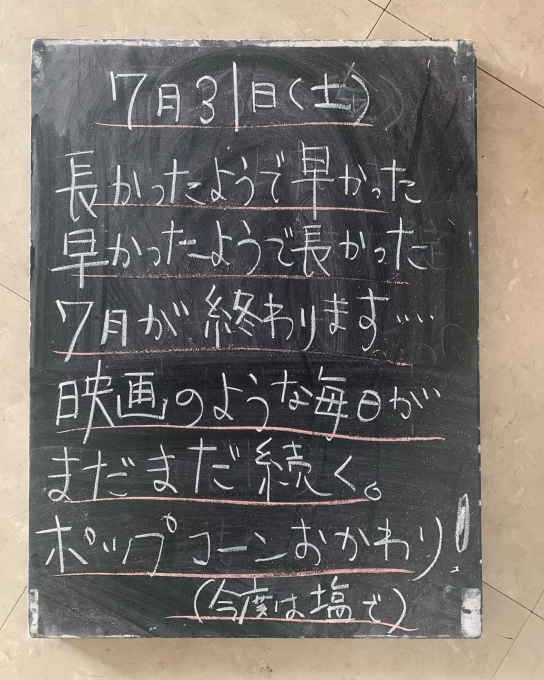 7月31日(土)
長かったようで早かった
早かったようで長かった
7月が終わります…
映画のような毎日が
まだまだ続く。
ポップコーンおかわり!
(今度は塩で)